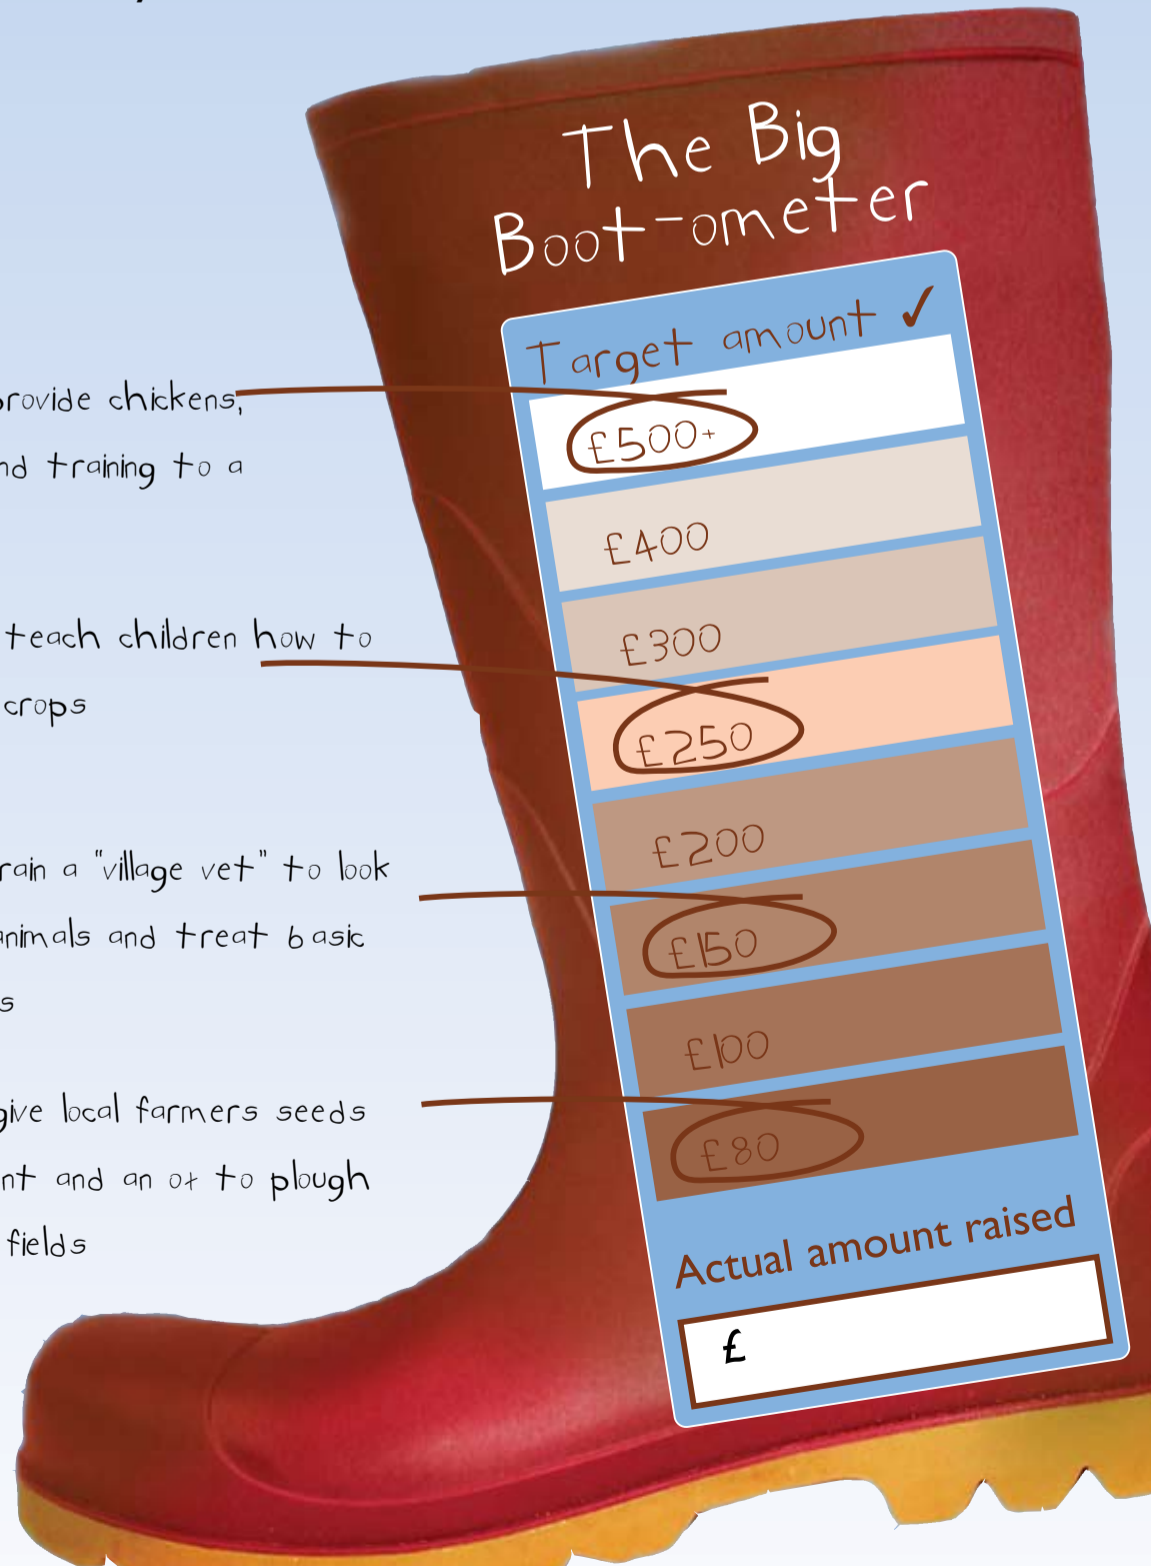 The Big
Boot-ometer
Target amount ✓
£500+
£400
£300
£250
£200
£150
£100
£80
Actual amount raised
£
provide chickens,
training to a
teach children how to
crops
a "village vet" to look
animals and treat basic
give local farmers seeds
and an ox to plough
fields